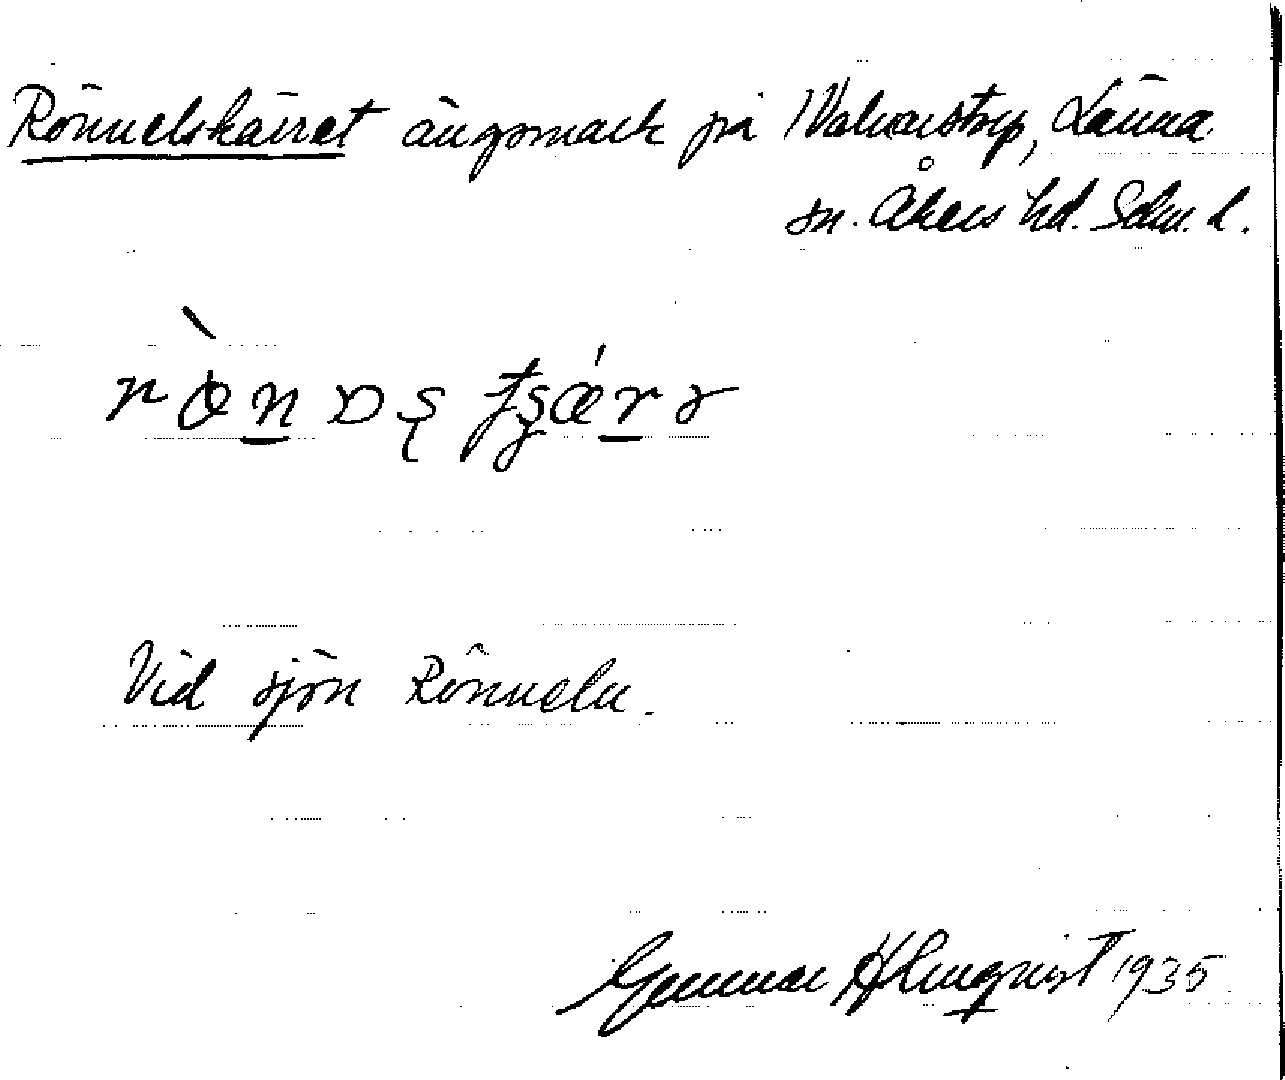 Rönnelskärret ängsmark på Valnarstorp, Länna
sn. Åkers hd. Sdm. l.
Vid sjön Rönneln.
Gunnar Hylmqvist 1935